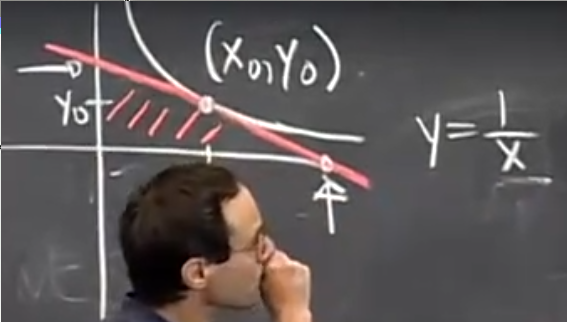 (x₀, y₀)
y₀
y = 1/x